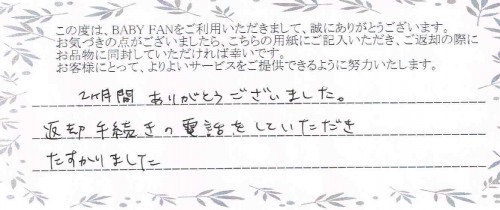 この度は、BABY FANをご利用いただきまして、誠にありがとうございます。
お気づきの点がございましたら、こちらの用紙にご記入いただき、ご返却の際に
お品物に同封していただければ幸いです。
お客様にとって、よりよいサービスをご提供できるように努力いたします。
2ヶ月間 ありがとうございました。
返却手続きの電話をしていただき
たすかりました